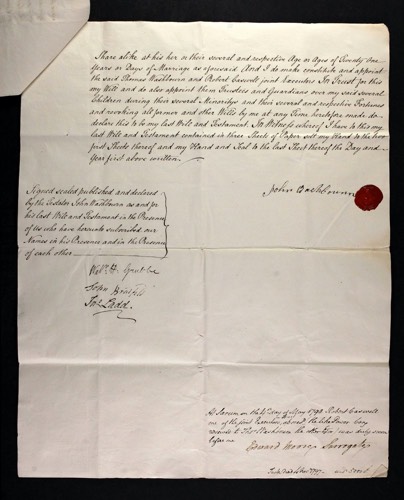 Share alike at his her or their several and respective Age or Ages of Twenty One
Years or Days of Marriage as aforesaid And I do make constitute and appoint
the said Thomas Washbourn and Robert Caswell joint Executors In Trust for this
my Will and do also appoint them Trustees and Guardians over my said several
Children during their several Minoritys and their several and respective Fortunes
and revoking all former and other Wills by me at any Time heretofore made do
declare this to be my last Will and Testament. In Witness whereof I have to this my
last Will and Testament contained in three Sheets of Paper set my Hand to the two
first Sheets thereof and my Hand and Seal to the last Sheet thereof the Day and
Year first above written
John Washbourn
Signed sealed published and declared
by the Testator John Washbourn as and for
his last Will and Testament in the Presence
of Us who have hereunto subscribed our
Names in his Presence and in the Presence
of each other
Will. H.
John
Ladd.
At Sarum on the day of May 1798 Robert Caswell
one of the joint Executors abovesd. the like Power being
reserved to Thos. Washbourn the other Exor. was duly sworn
before me
Edward Surrogate